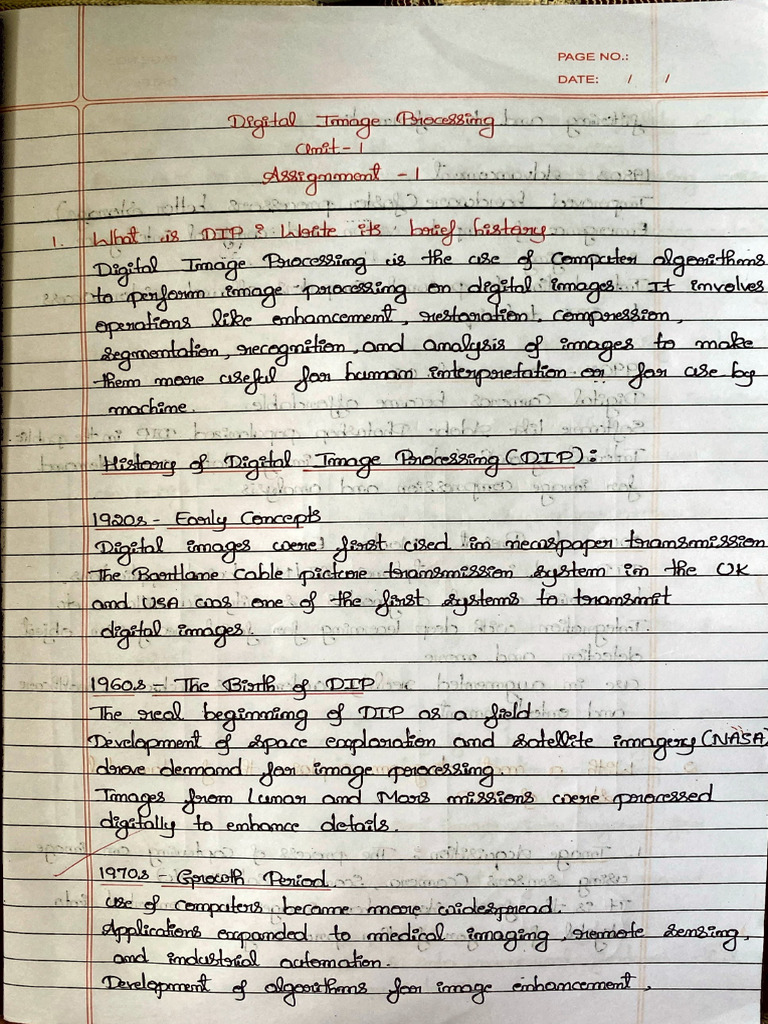 PAGE NO.:
DATE: / /
Digital Image Processing
Unit-1
Assignment -1
1. What is DIP? Write its brief history
Digital Image Processing is the use of Computer algorithms
to perform image processing on digital images. It involves
operations like enhancement, restoration, compression,
segmentation, recognition, and analysis of images to make
them more useful for human interpretation or for use by
machine.
History of Digital Image Processing (DIP):
1920s - Early Concepts
Digital images were first used in newspaper transmission
The Bartlane Cable picture transmission system in the UK
and USA was one of the first systems to transmit
digital images.
1960s - The Birth of DIP
The real beginning of DIP as a field.
Development of space exploration and satellite imagery (NASA)
drove demand for image processing.
Images from Lunar and Mars missions were processed
digitally to enhance details.
1970s - Growth Period
Use of computers became more widespread.
Applications expanded to medical imaging, remote sensing,
and industrial automation.
Development of algorithms for image enhancement,